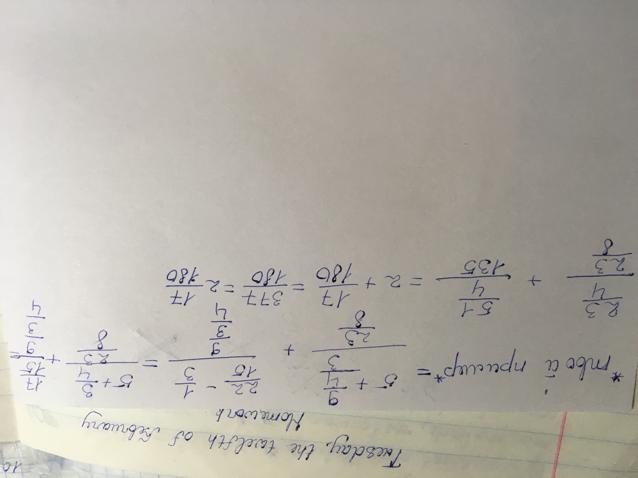 Tuesday, the twelfth of February
Homework
*твой пример* = (5 + (9/4)/3)/(23/8) + (22/15 - 1/3)/((9/3)/4) = (5 + 3/4)/(23/8) + (17/15)/((9/3)/4) =
(23/4)/(23/8) + (51/4)/135 = 2 + 17/180 = 377/180 = 2 17/180